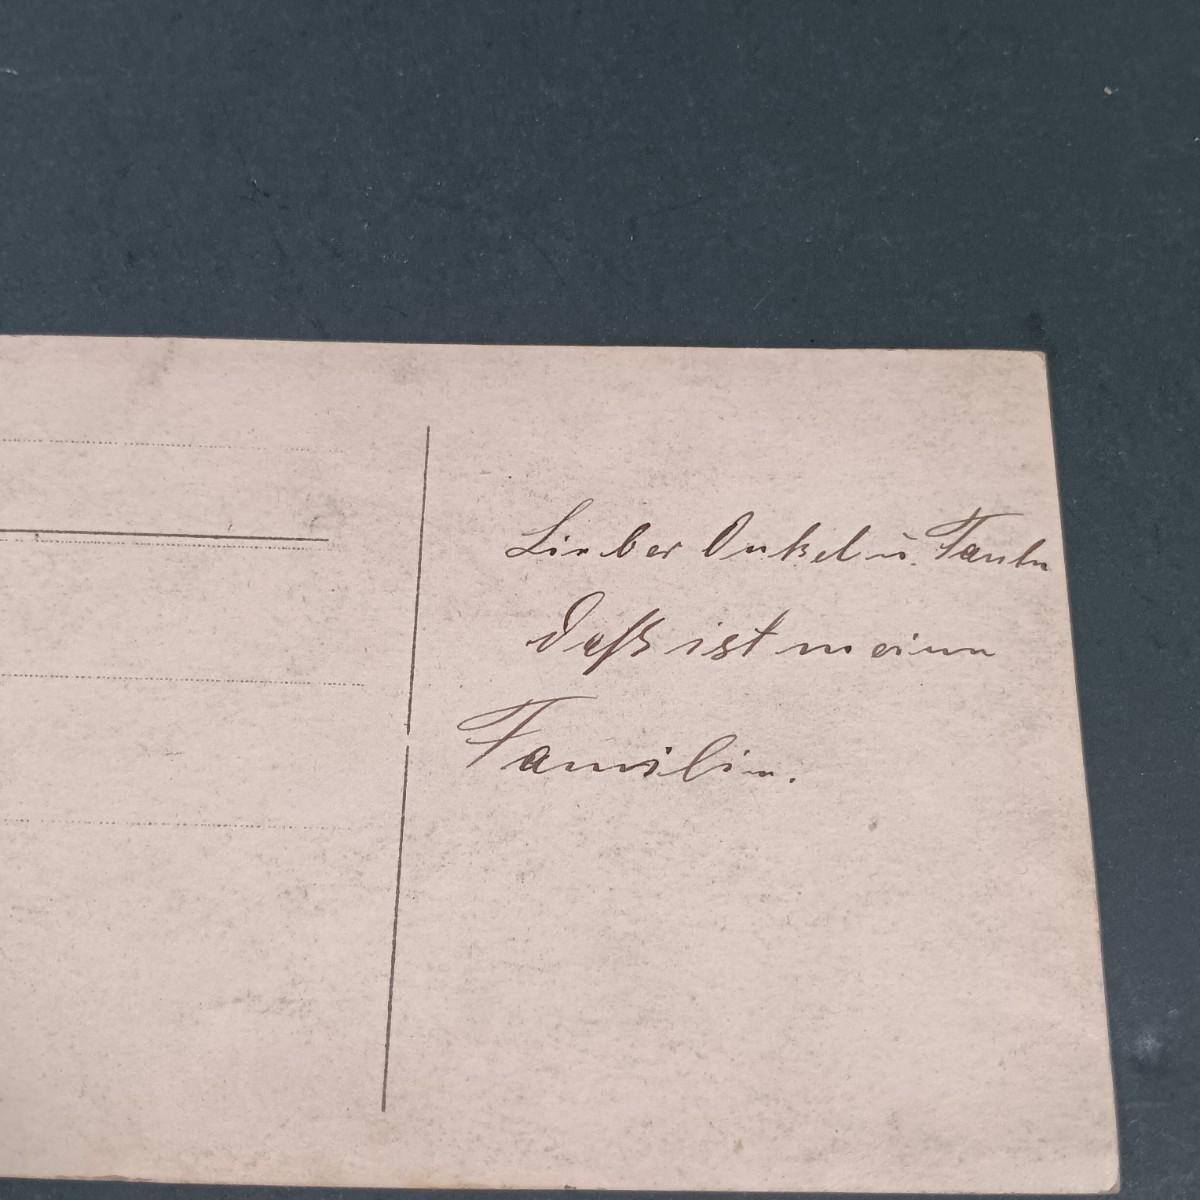 Lieber Onkel u. Tante
daß ist meine
Familie.